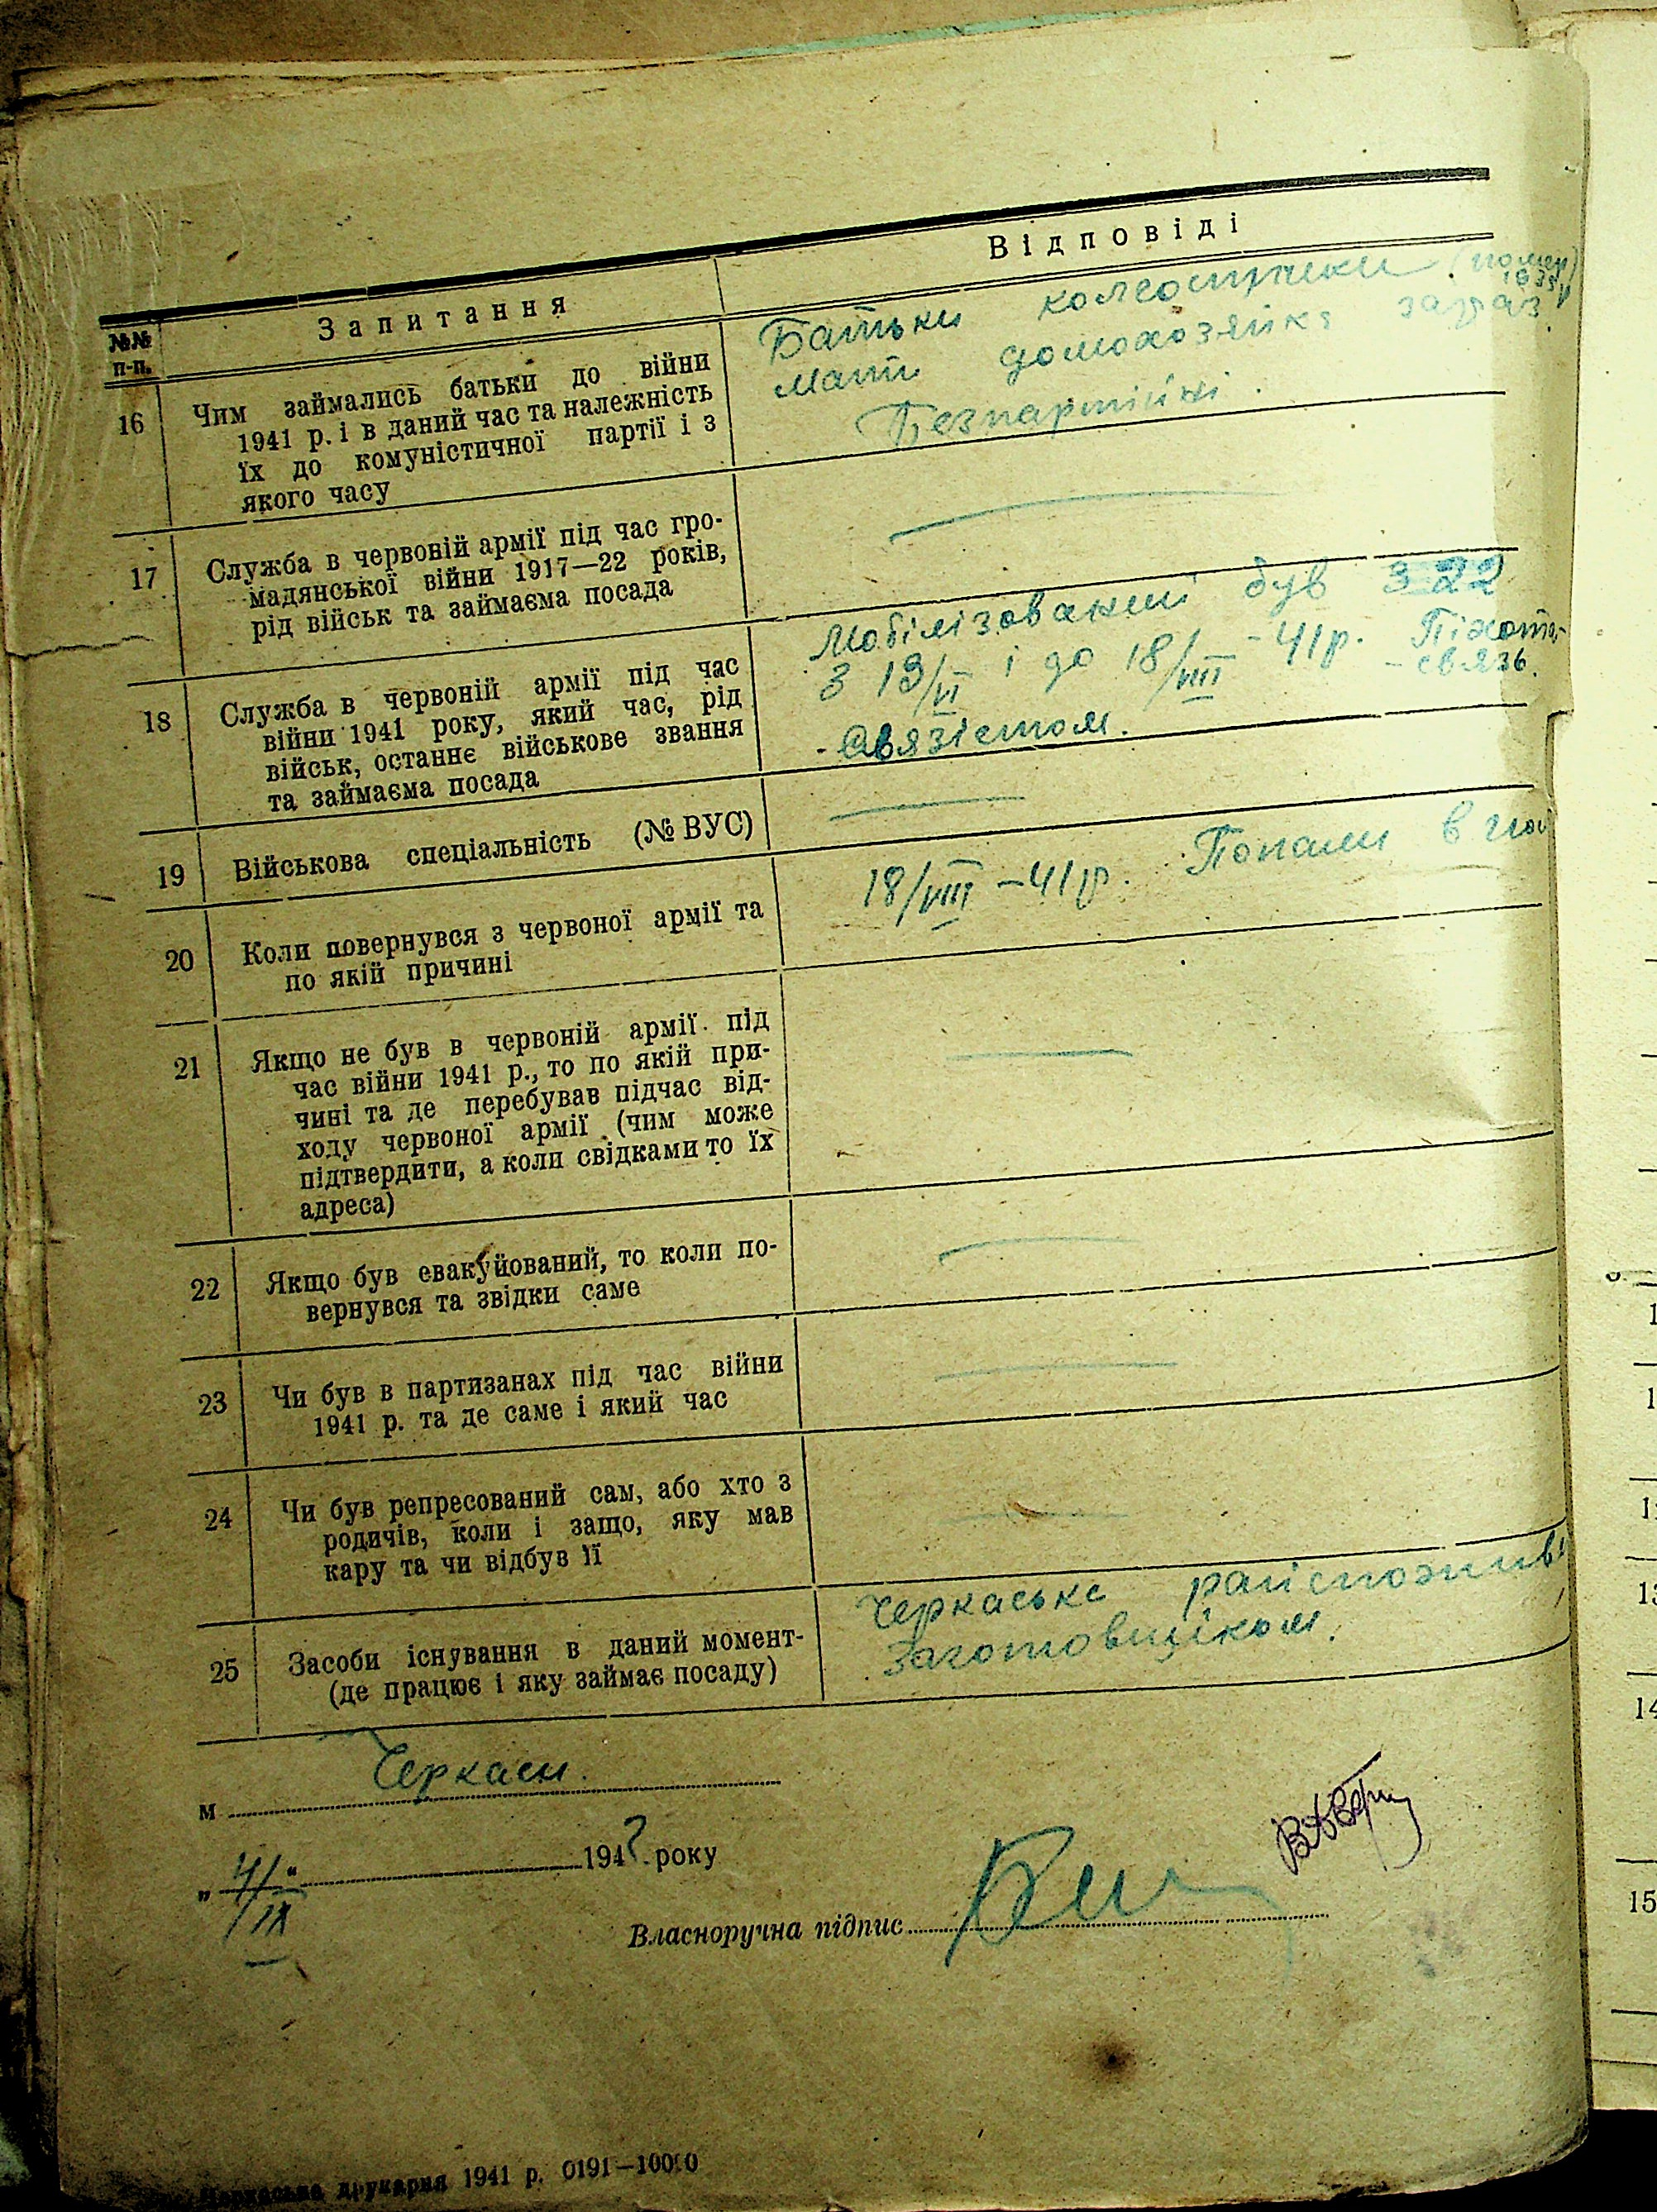 №№ п-п.
Запитання
Відповіді
16
Чим займались батьки до війни
1941 р. і в даний час та належність
їх до комуністичної партії і з
якого часу
Батьки колгоспники (помер)
Мати домохозяйка зараз
Безпартійні.
17
Служба в червоній армії під час гро-
мадянської війни 1917—22 років,
рід військ та займаєма посада
—
18
Служба в червоній армії під час
війни 1941 року, який час, рід
військ, останнє військове звання
та займаєма посада
Мобілізований був з 22
З 19/VI і до 18/VIII – 41 р. Піхота-
- связь.
- Связістом.
19
Військова спеціальність (№ ВУС)
—
20
Коли повернувся з червоної армії та
по якій причині
18/VIII – 41 р. Попали в
21
Якщо не був в червоній армії під
час війни 1941 р., то по якій при-
чині та де перебував підчас від-
ходу червоної армії (чим може
підтвердити, а коли свідками то їх
адреса)
—
22
Якщо був евакуйований, то коли по-
вернувся та звідки саме
—
23
Чи був в партизанах під час війни
1941 р. та де саме і який час
—
24
Чи був репресований сам, або хто з
родичів, коли і защо, яку мав
кару та чи відбув її
—
25
Засоби існування в даний момент-
(де працює і яку займає посаду)
Черкаське
Заготовщіком.
м Черкаси.
194 року
Власноручна підпис
Черкаська друкарня 1941 р. 0191—10000